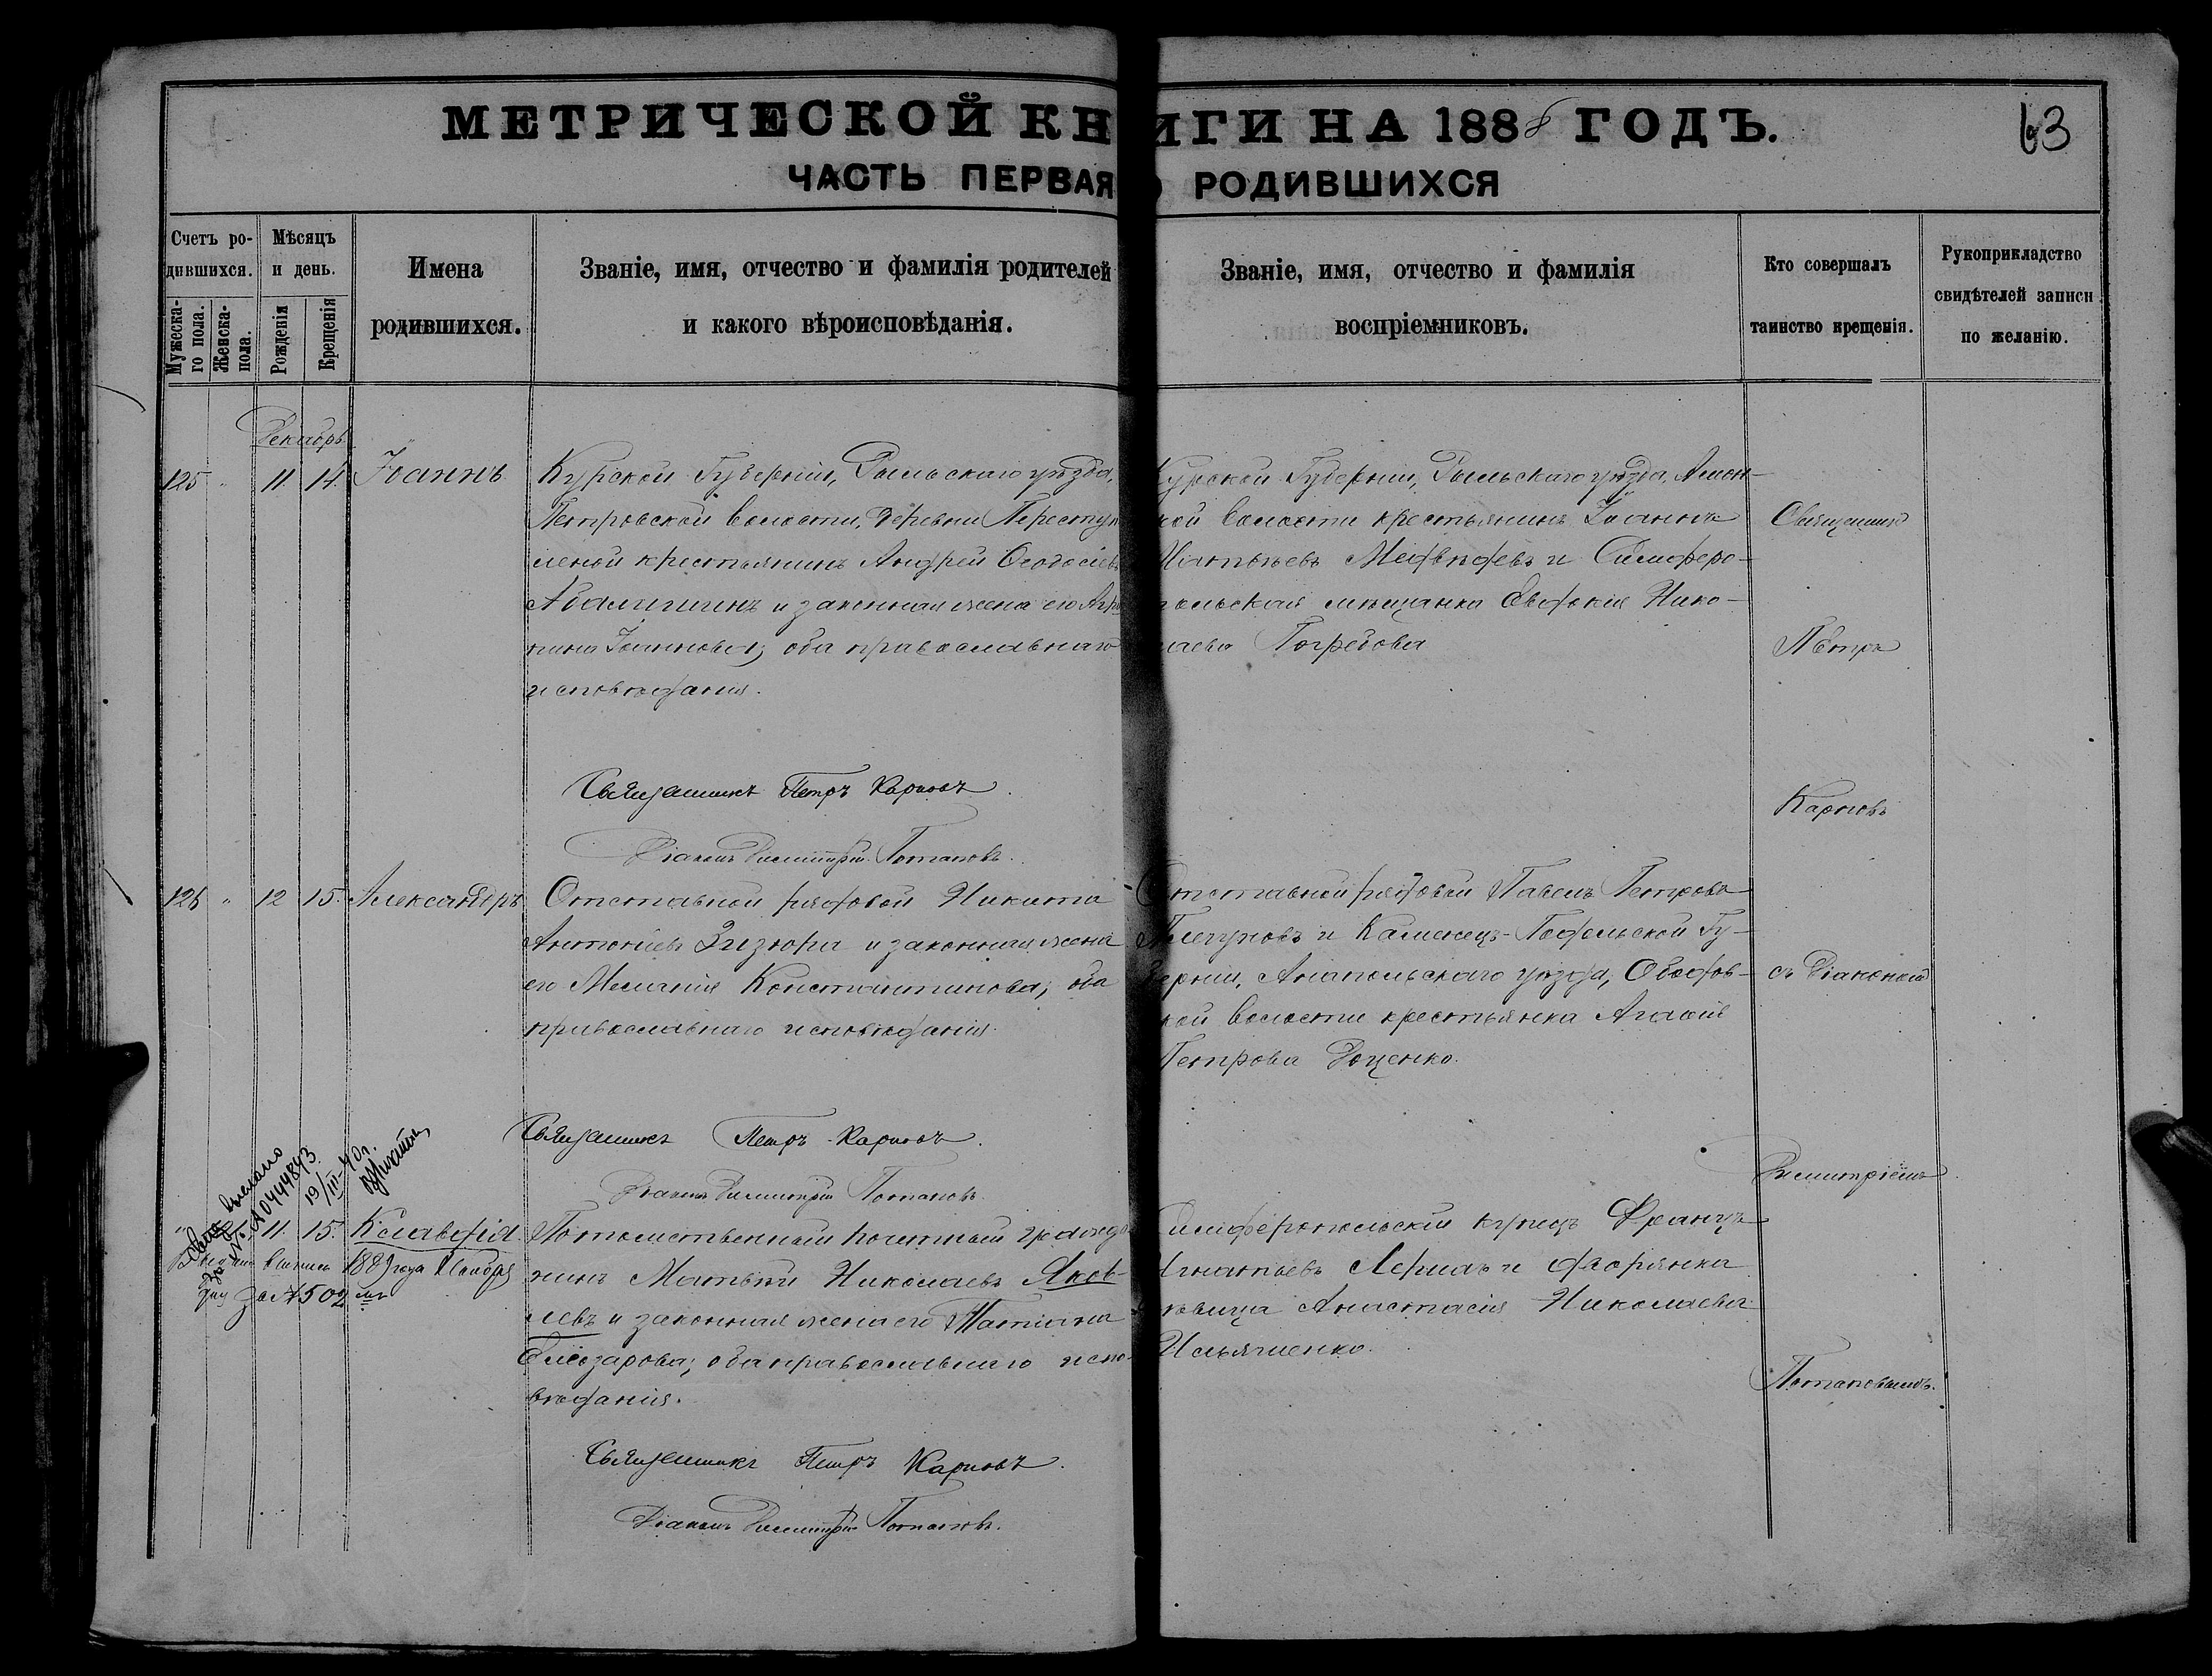 МЕТРИЧЕСКОЙ КНИГИ НА 1888 ГОДЪ.
63
ЧАСТЬ ПЕРВАЯ О РОДИВШИХСЯ
Счетъ ро-
дившихся.
Мужеска-
го пола.
Женска-
пола.
Мѣсяцъ
и день.
Рожденія
Крещенія
Имена
родившихся.
Званіе, имя, отчество и фамилія родителей
и какого вѣроисповѣданія.
Званіе, имя, отчество и фамилія
воспріемниковъ.
Кто совершалъ
таинство крещенія.
Рукоприкладство
свидѣтелей записи
по желанію.
Декабрь
125 " 11. 14. Іоаннъ
Курской Губерніи, Рыльскаго уѣзда,
Петровской волости, деревни Переступ
леной крестьянинъ Андрей Ѳеодосіевъ
и законная жена его Агрип
пина Іоаннова; оба православнаго
исповѣданія.
Священникъ Петръ Карповъ.
Діаконъ Димитрій Потаповъ.
Курской Губерніи, Рыльскаго уѣзда,
кой волости крестьянинъ Іоаннъ
Меѳодіевъ и Симферо-
польская мѣщанка Евдокія Нико-
лаева Погребова
Священникъ
Петръ
Карповъ
126 " 12 15. Александръ
Отставной рядовой Никита
Антоніевъ Зизюра и законная жена
его Меланія Константинова; оба
православнаго исповѣданія.
Священникъ Петръ Карповъ.
Діаконъ Димитрій Потаповъ.
Отставной рядовой Павелъ Петровъ
и Каменецъ-Подольской Гу-
берніи, Анапольскаго уѣзда, Ободов-
кой волости крестьянка Агаѳія
Петрова Доценко.
съ Діакономъ
Димитріемъ
Потаповымъ.
" 11. 15. Клавдія
выслано
№ А 0444843
19/III-40 г.
1889 года Ноября
за № 502
Потомственный почетный гражда
нинъ Матвѣй Николаевъ Яков-
левъ и законная жена его Татіана
Елеазарова; оба православнаго испо-
вѣданія.
Священникъ Петръ Карповъ.
Діаконъ Димитрій Потаповъ.
Симферопольскій купецъ Францъ
Игнатьевъ и дворянка
дѣвица Анастасія Николаева
Ильяшенко.